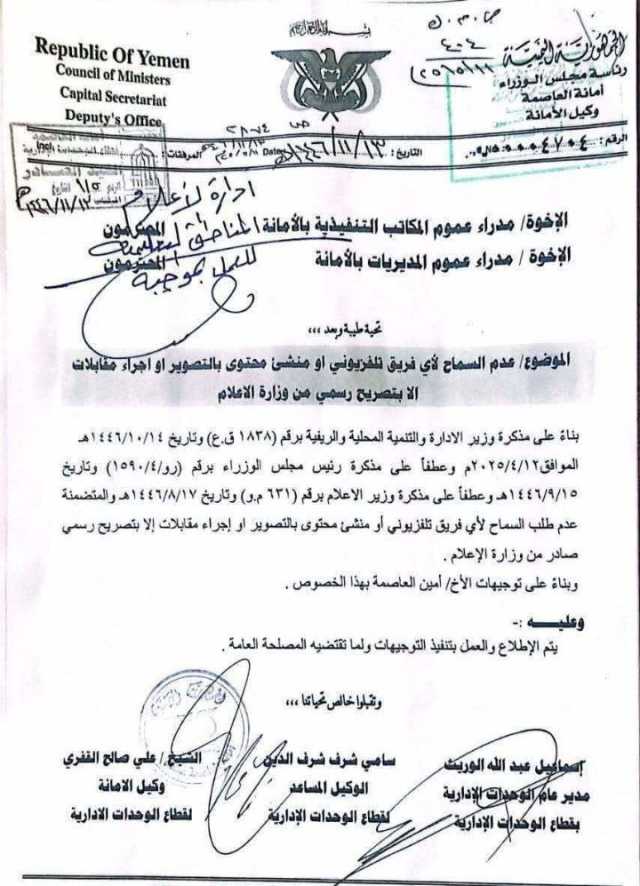 Republic Of Yemen
Council of Ministers
Capital Secretariat
Deputy's Office
الجمهورية اليمنية
رئاسة مجلس الوزراء
أمانة العاصمة
وكيل الأمانة
الرقم:
التاريخ: ١٤٤٦/١١/١٣هـ
المرفقات:
ادارة الإعلام
المناطق التعليمية
للعمل بموجبه
الإخوة/ مدراء عموم المكاتب التنفيذية بالأمانة المحترمون
الإخوة / مدراء عموم المديريات بالأمانة المحترمون
تحية طيبة وبعد ،،،
الموضوع/ عدم السماح لأي فريق تلفزيوني او منشئ محتوى بالتصوير او اجراء مقابلات
الا بتصريح رسمي من وزارة الاعلام
بناءً على مذكرة وزير الادارة والتنمية المحلية والريفية برقم (١٨٣٨ ق.ع) وتاريخ ١٤٤٦/١٠/١٤هـ
الموافق٢٠٢٥/٤/١٢م وعطفاً على مذكرة رئيس مجلس الوزراء برقم (رو/١٥٩٠/٤) وتاريخ
١٤٤٦/٩/١٥هـ وعطفاً على مذكرة وزير الاعلام برقم (٦٣١ م.و) وتاريخ ١٤٤٦/٨/١٧هـ والمتضمنة
عدم طلب السماح لأي فريق تلفزيوني أو منشئ محتوى بالتصوير او إجراء مقابلات إلا بتصريح رسمي
صادر من وزارة الإعلام .
وبناءً على توجيهات الأخ/ أمين العاصمة بهذا الخصوص .
وعليــــه :-
يتم الإطلاع والعمل بتنفيذ التوجيهات ولما تقتضيه المصلحة العامة .
وتقبلوا خالص تحياتنا ،،،
إسماعيل عبد الله الوريث
مدير عام الوحدات الإدارية
بقطاع الوحدات الإدارية
سامي شرف شرف الدين
الوكيل المساعد
لقطاع الوحدات الإدارية
الشيخ/ علي صالح القفري
وكيل الامانة
لقطاع الوحدات الادارية